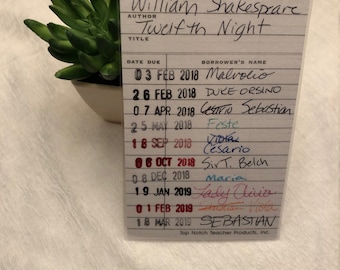 William Shakespeare
AUTHOR
Twelfth Night
TITLE
DATE DUE BORROWER'S NAME
03 FEB 2018 Malvolio
26 FEB 2018 DUKE ORSINO
07 APR 2018 Cesario Sebastian
25 MAY 2018 Feste
18 SEP 2018 Viola
Cesario
06 OCT 2018 Sir T. Belch
08 DEC 2018 Maria
19 JAN 2019 Lady Olivia
01 FEB 2019
18 MAR 2019 SEBASTIAN
Top Notch Teacher Products, Inc.